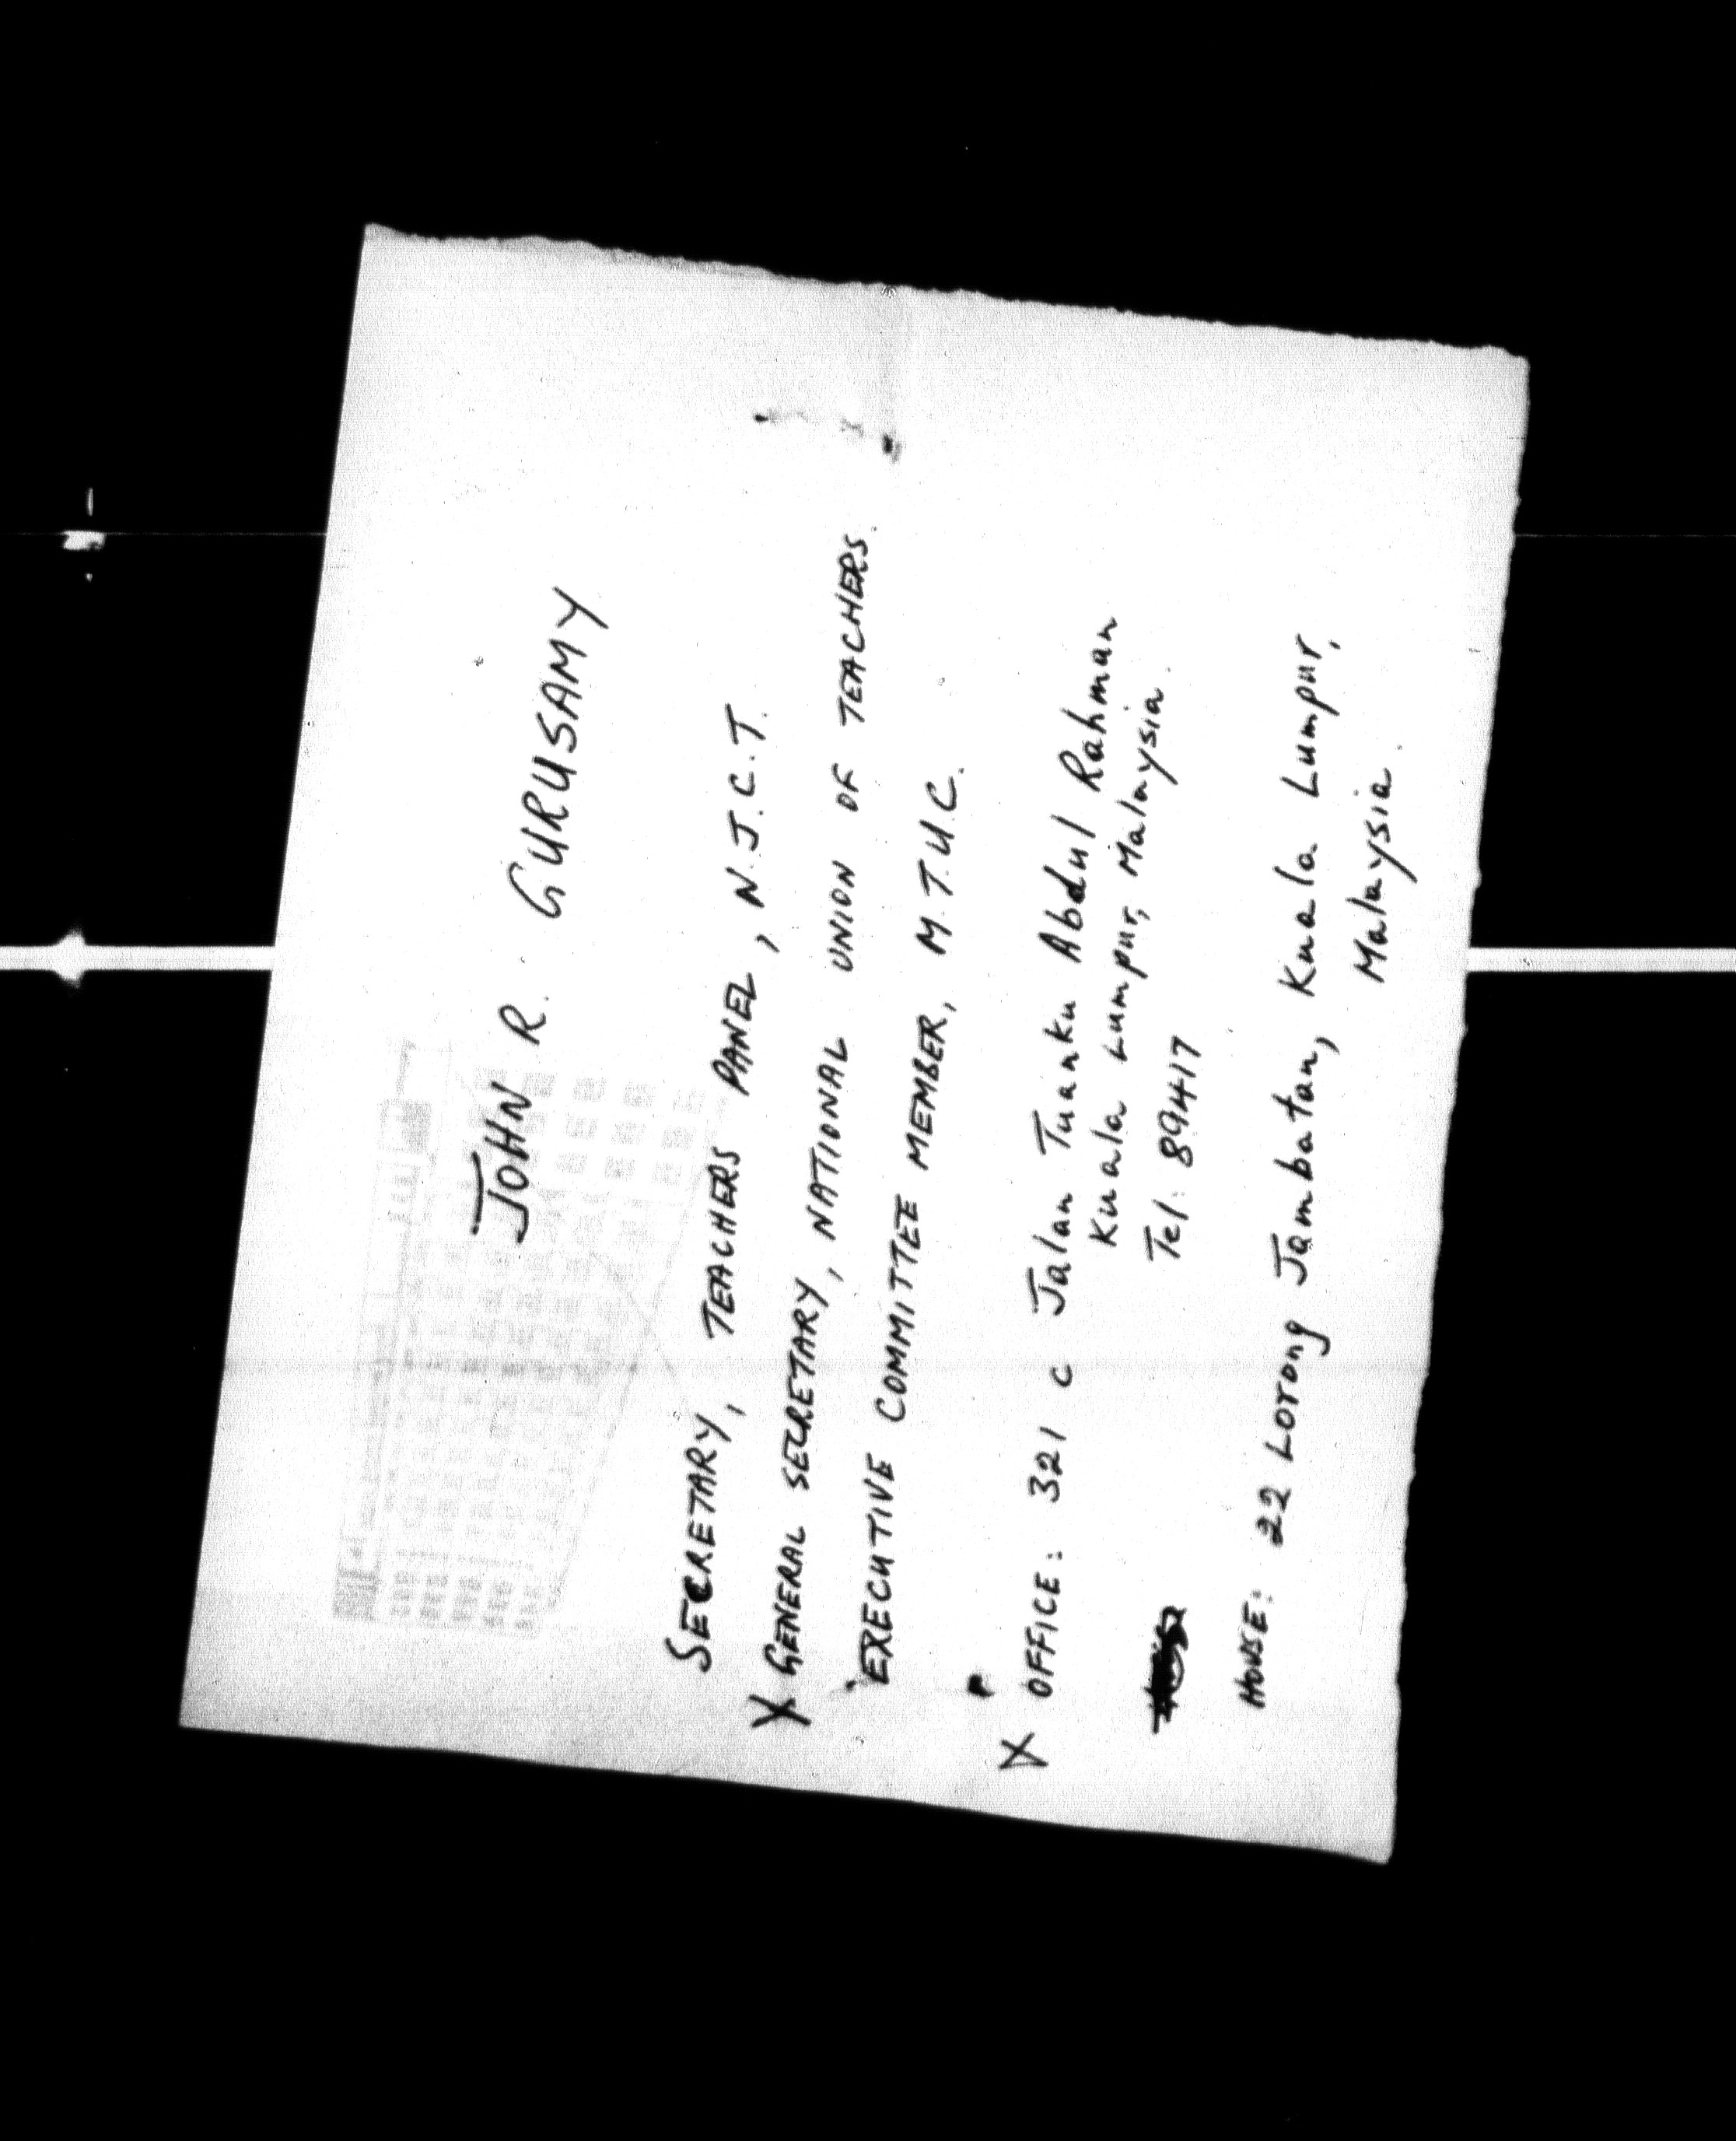 JOHN R. GURUSAMY
SECRETARY, TEACHERS PANEL, N.J.C.T.
X GENERAL SECRETARY, NATIONAL UNION OF TEACHERS.
EXECUTIVE COMMITTEE MEMBER, M.T.U.C.
X OFFICE: 321 C Jalan Tuanku Abdul Rahman
Kuala Lumpur, Malaysia.
Tel: 89417
HOUSE: 22 Lorong Jambatan, Kuala Lumpur,
Malaysia.